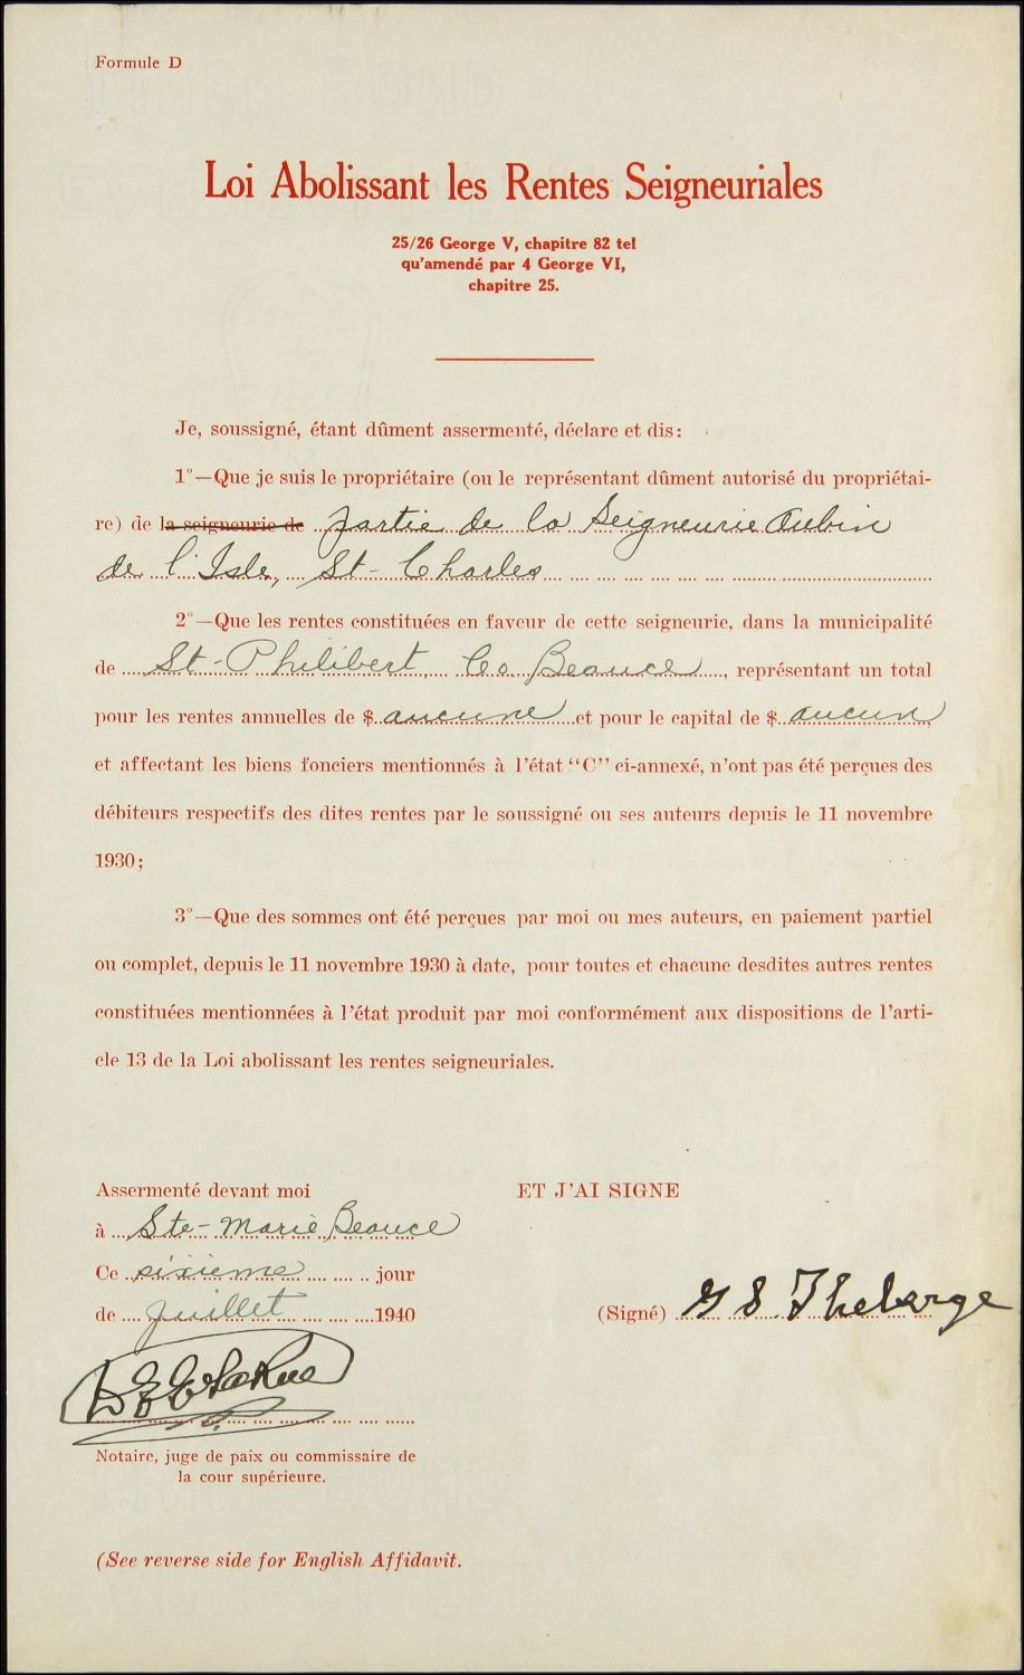 Formule D
Loi Abolissant les Rentes Seigneuriales
25/26 George V, chapitre 82 tel
qu'amendé par 4 George VI,
chapitre 25.
Je, soussigné, étant dûment assermenté, déclare et dis:
1°—Que je suis le propriétaire (ou le représentant dûment autorisé du propriétai-
re) de la seigneurie de partie de la Seigneurie Aubin
de l'Isle, St-Charles
2°—Que les rentes constituées en faveur de cette seigneurie, dans la municipalité
de St-Philibert, Co. Beauce, représentant un total
pour les rentes annuelles de $ aucune et pour le capital de $ aucun,
et affectant les biens fonciers mentionnés à l'état "C" ci-annexé, n'ont pas été perçues des
débiteurs respectifs des dites rentes par le soussigné ou ses auteurs depuis le 11 novembre
1930;
3°—Que des sommes ont été perçues par moi ou mes auteurs, en paiement partiel
ou complet, depuis le 11 novembre 1930 à date, pour toutes et chacune desdites autres rentes
constituées mentionnées à l'état produit par moi conformément aux dispositions de l'arti-
cle 13 de la Loi abolissant les rentes seigneuriales.
Assermenté devant moi
à Ste-Marie Beauce
Ce sixieme jour
de Juillet 1940
ET J'AI SIGNE
(Signé) G S Theberge
LaRue
Notaire, juge de paix ou commissaire de
la cour supérieure.
(See reverse side for English Affidavit.